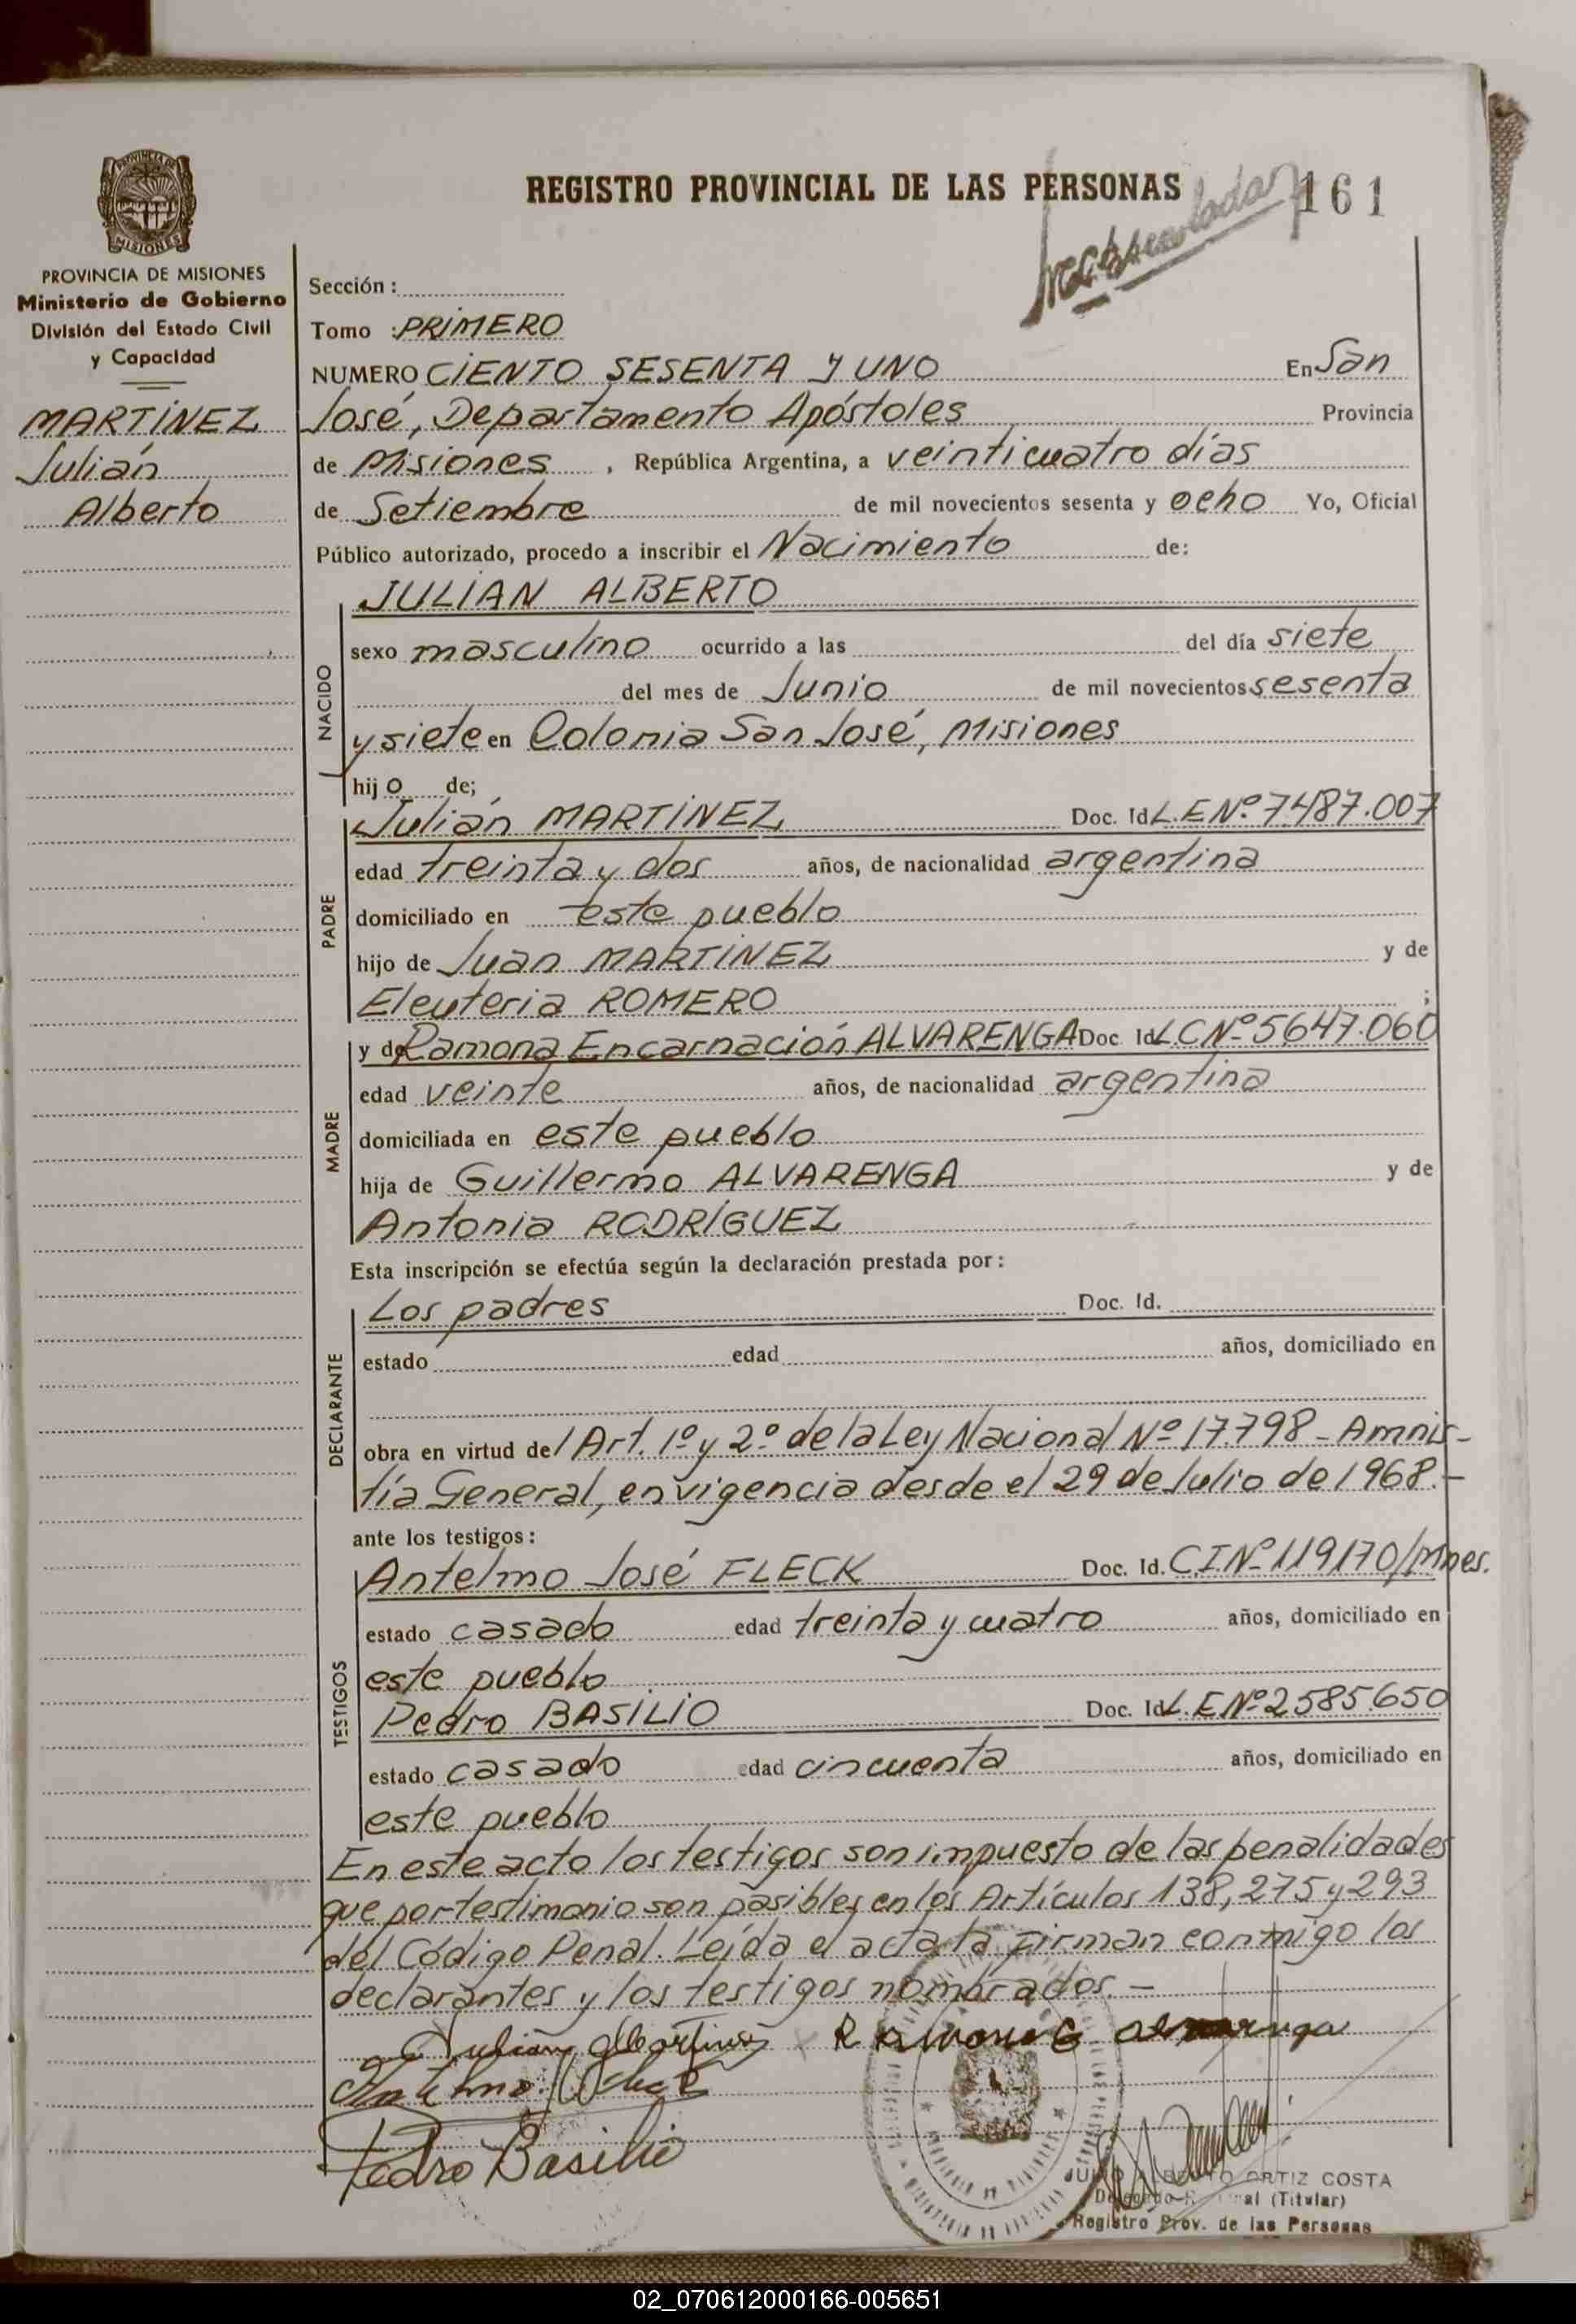 REGISTRO PROVINCIAL DE LAS PERSONAS
161
PROVINCIA DE
MISIONES
PROVINCIA DE MISIONES
Ministerio de Gobierno
División del Estado Civil
y Capacidad
MARTÍNEZ
Julián
Alberto
Sección :
Tomo : PRIMERO
NUMERO CIENTO SESENTA Y UNO En San
José, Departamento Apóstoles Provincia
de Misiones , República Argentina, a veinticuatro días
de Setiembre de mil novecientos sesenta y ocho Yo, Oficial
Público autorizado, procedo a inscribir el Nacimiento de:
NACIDO
JULIAN ALBERTO
sexo masculino ocurrido a las del día siete
del mes de Junio de mil novecientos sesenta
y siete en Colonia San José, Misiones
hijo de;
PADRE
Julián MARTÍNEZ Doc. Id L.E Nº 7.487.007
edad treinta y dos años, de nacionalidad argentina
domiciliado en este pueblo
hijo de Juan MARTÍNEZ y de
Eleuteria ROMERO ;
MADRE
y de Ramona Encarnación ALVARENGA Doc Id L.C Nº 5.647.060
edad veinte años, de nacionalidad argentina
domiciliada en este pueblo
hija de Guillermo ALVARENGA y de
Antonia RODRÍGUEZ
Esta inscripción se efectúa según la declaración prestada por :
DECLARANTE
Los padres Doc. Id.
estado edad años, domiciliado en
obra en virtud del Art. 1º y 2º de la Ley Nacional Nº 17.798 - Amnis-
tía General, en vigencia desde el 29 de Julio de 1968.-
ante los testigos :
TESTIGOS
Antelmo José FLECK Doc. Id. C.I Nº 119170/Mnes.
estado casado edad treinta y cuatro años, domiciliado en
este pueblo
Pedro BASILIO Doc. Id L.E Nº 2585.650
estado casado edad cincuenta años, domiciliado en
este pueblo
En este acto los testigos son impuesto de las penalidades
que por testimonio son pasibles en los Artículos 138, 275 y 293
del Código Penal. Leída el acta la firman conmigo los
declarantes y los testigos nombrados. -
Julián Martinez Ramona E Alvarenga
Pedro Basilio
JULIO ALBERTO ORTIZ COSTA
(Titular)
Registro Prov. de las Personas
02_070612000166-005651